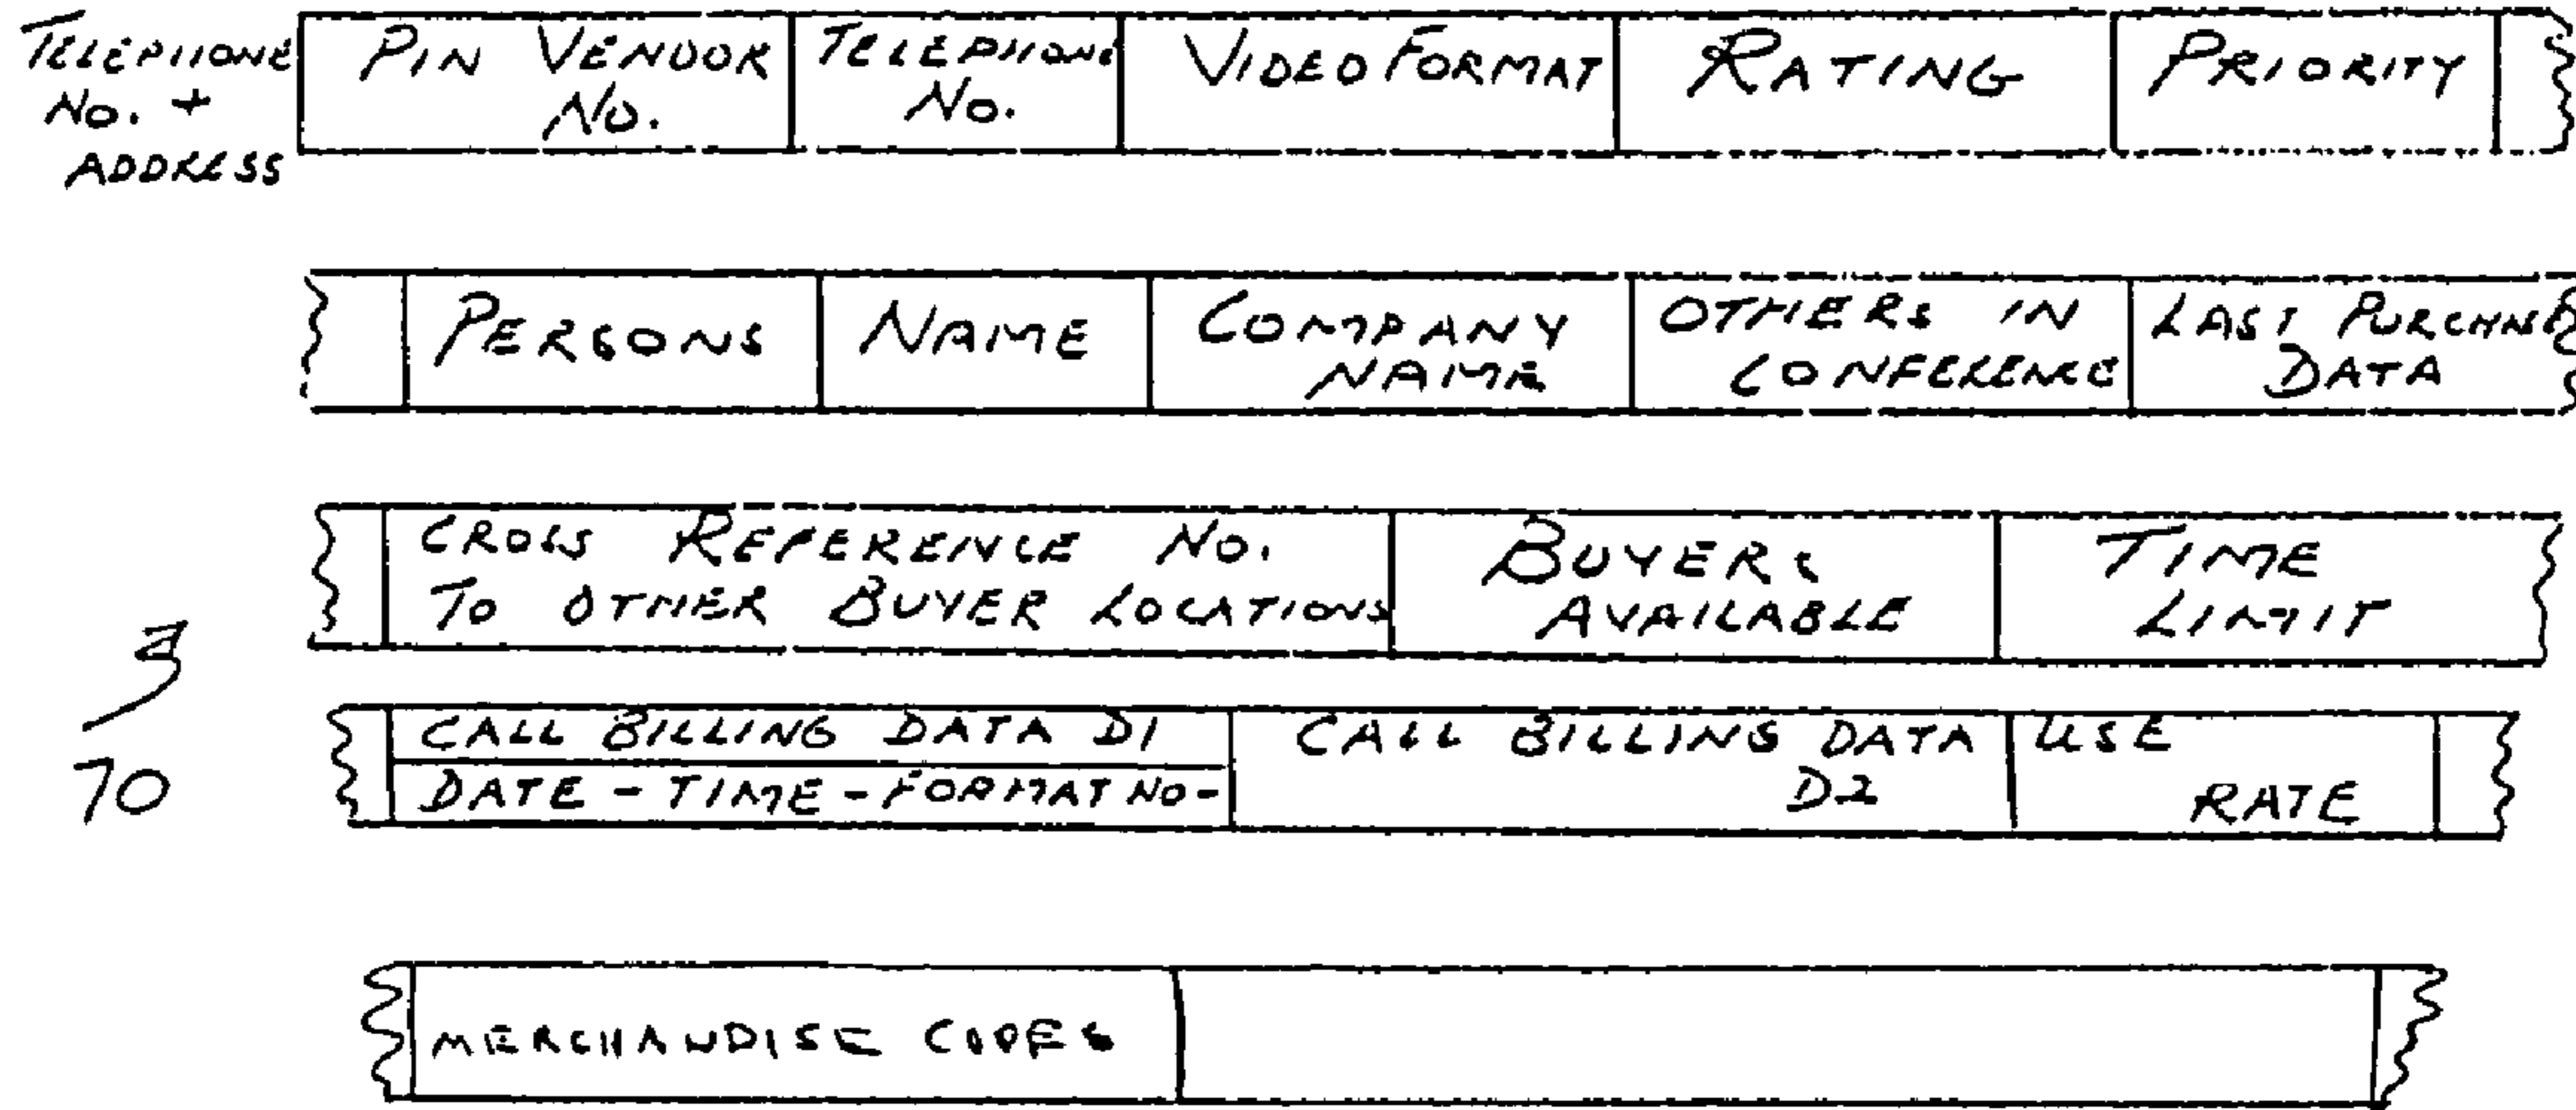 TELEPHONE
No. +
ADDRESS
PIN VENDOR
No.
TELEPHONE
No.
VIDEO FORMAT
RATING
PRIORITY
PERSONS
NAME
COMPANY
NAME
OTHERS IN
CONFERENCE
LAST PURCHASE
DATA
CROSS REFERENCE No.
To OTHER BUYER LOCATIONS
BUYERS
AVAILABLE
TIME
LIMIT
3
70
CALL BILLING DATA D1
DATE - TIME - FORMAT NO -
CALL BILLING DATA
D2
USE
RATE
MERCHANDISE CODES